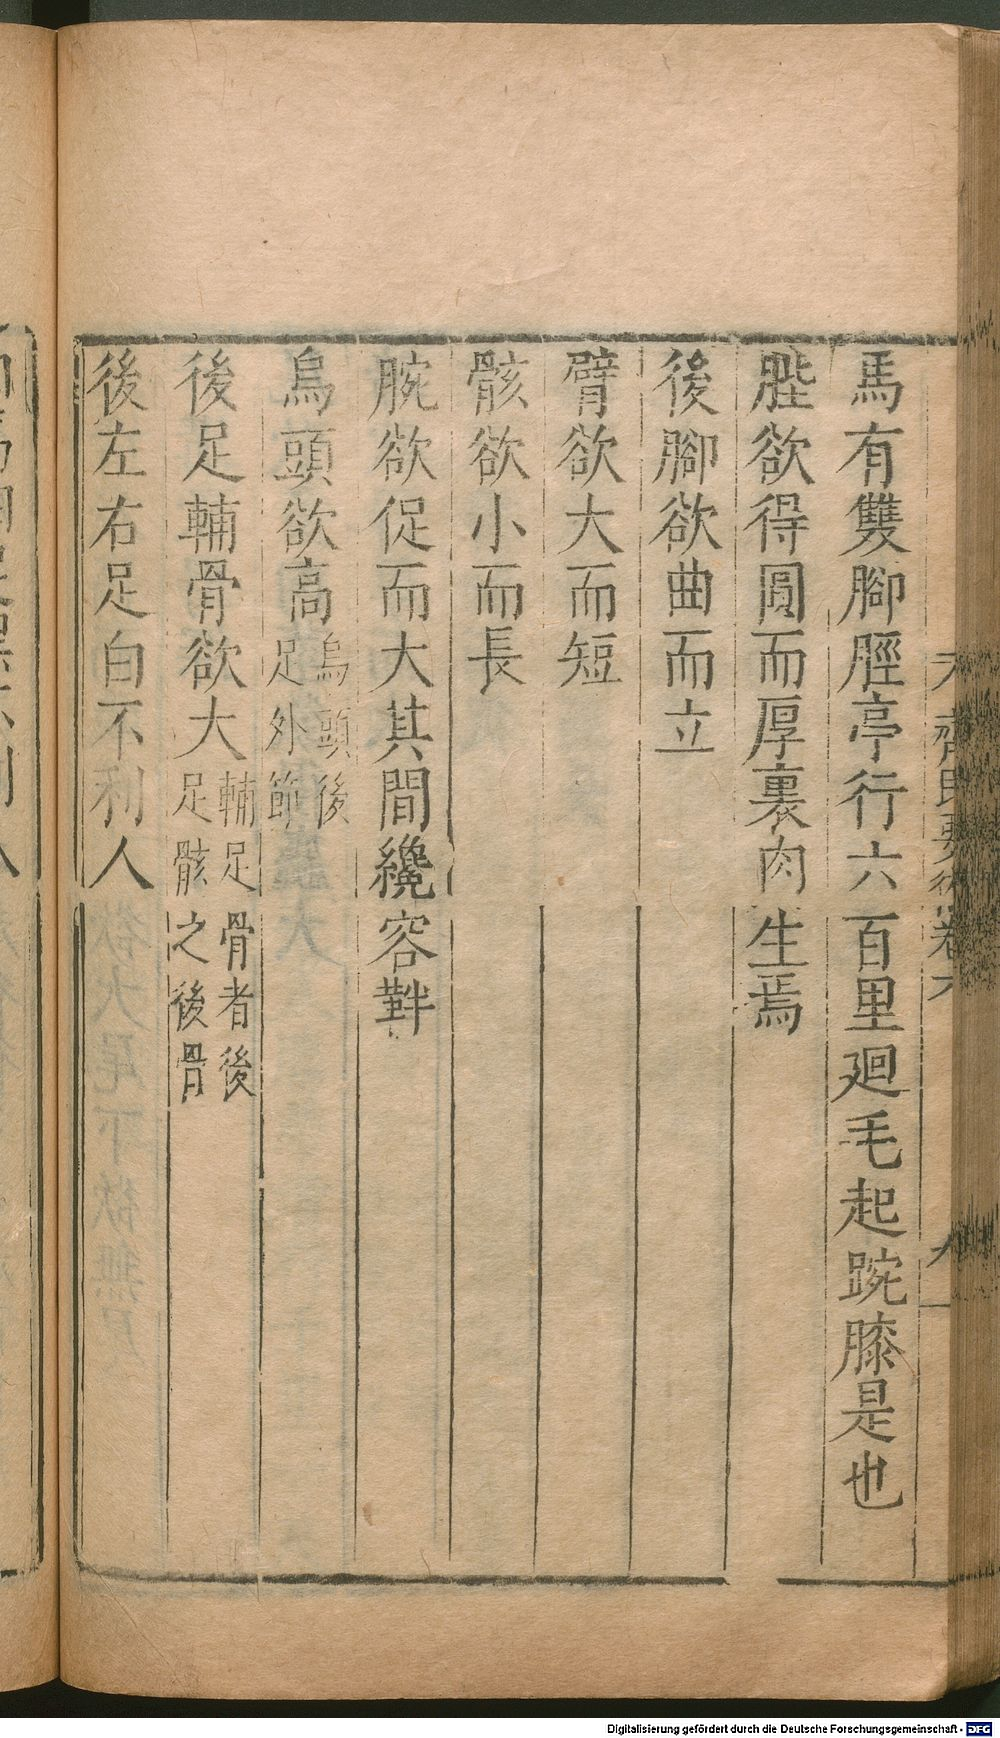 馬有雙腳脛亭行六百里迴毛起踠膝是也
䏶欲得圓而厚裏肉生焉
後腳欲曲而立
臂欲大而短
骸欲小而長
腕欲促而大其間纔容靽
烏頭欲高烏頭後足外節
後足輔骨欲大輔足骨者後足骸之後骨
後左右足白不利人
齊民要術卷六
九
Digitalisierung gefördert durch die Deutsche Forschungsgemeinschaft - DFG